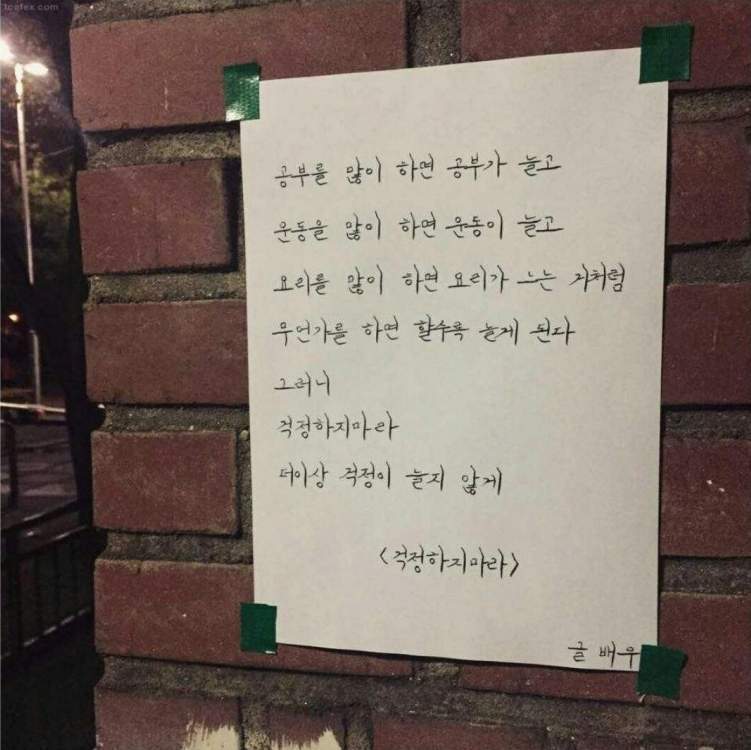 tcafex.com
공부를 많이 하면 공부가 늘고
운동을 많이 하면 운동이 늘고
요리를 많이 하면 요리가 느는 거처럼
무언가를 하면 할수록 늘게 된다
그러니
걱정하지마라
더이상 걱정이 늘지 않게
<걱정하지마라>
글 배우